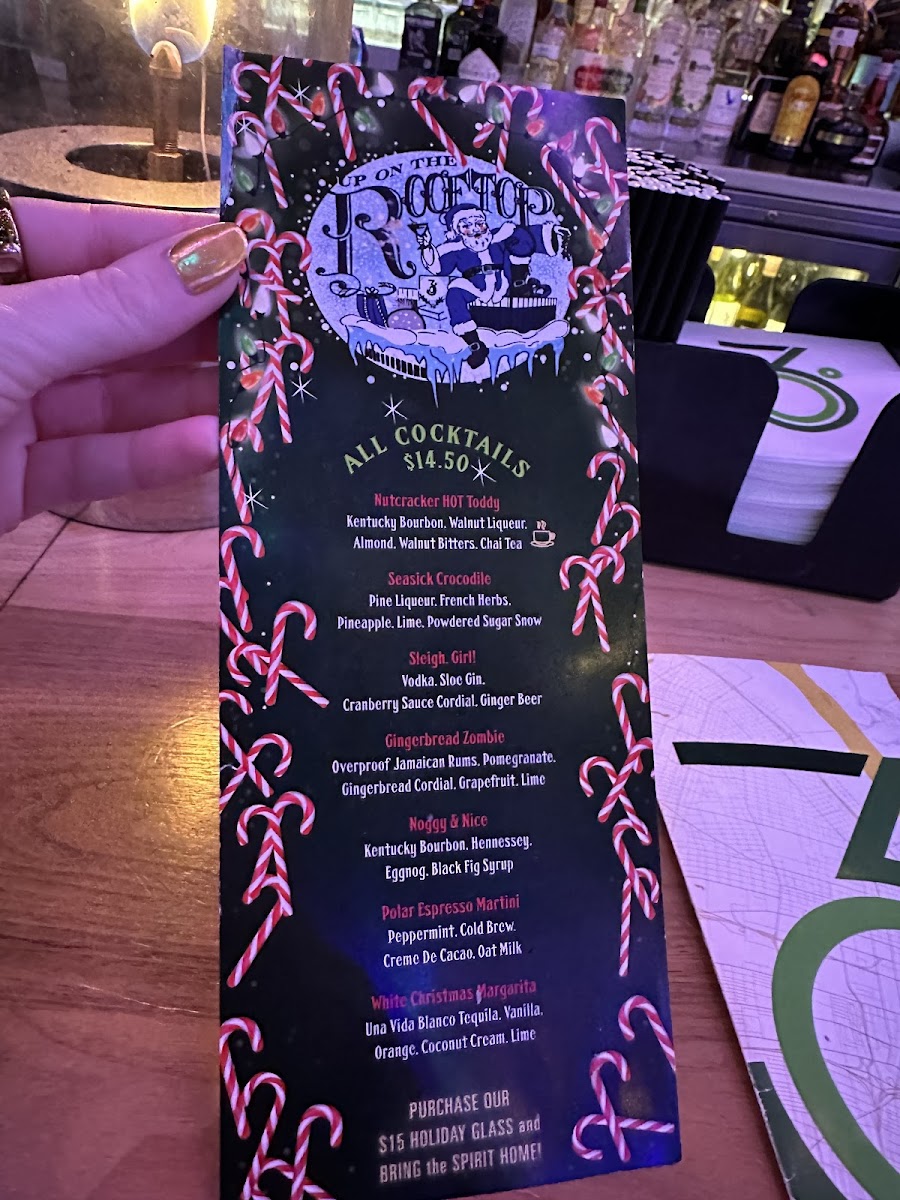 UP ON THE
ROOFTOP
3
ALL COCKTAILS
$14.50
Nutcracker HOT Toddy
Kentucky Bourbon. Walnut Liqueur.
Almond. Walnut Bitters. Chai Tea
Seasick Crocodile
Pine Liqueur. French Herbs.
Pineapple. Lime. Powdered Sugar Snow
Sleigh. Girl!
Vodka. Sloe Gin.
Cranberry Sauce Cordial. Ginger Beer
Gingerbread Zombie
Overproof Jamaican Rums. Pomegranate.
Gingerbread Cordial. Grapefruit. Lime
Noggy & Nice
Kentucky Bourbon. Hennessey.
Eggnog. Black Fig Syrup
Polar Espresso Martini
Peppermint. Cold Brew.
Creme De Cacao. Oat Milk
White Christmas Margarita
Una Vida Blanco Tequila. Vanilla.
Orange. Coconut Cream. Lime
PURCHASE OUR
$15 HOLIDAY GLASS and
BRING the SPIRIT HOME!